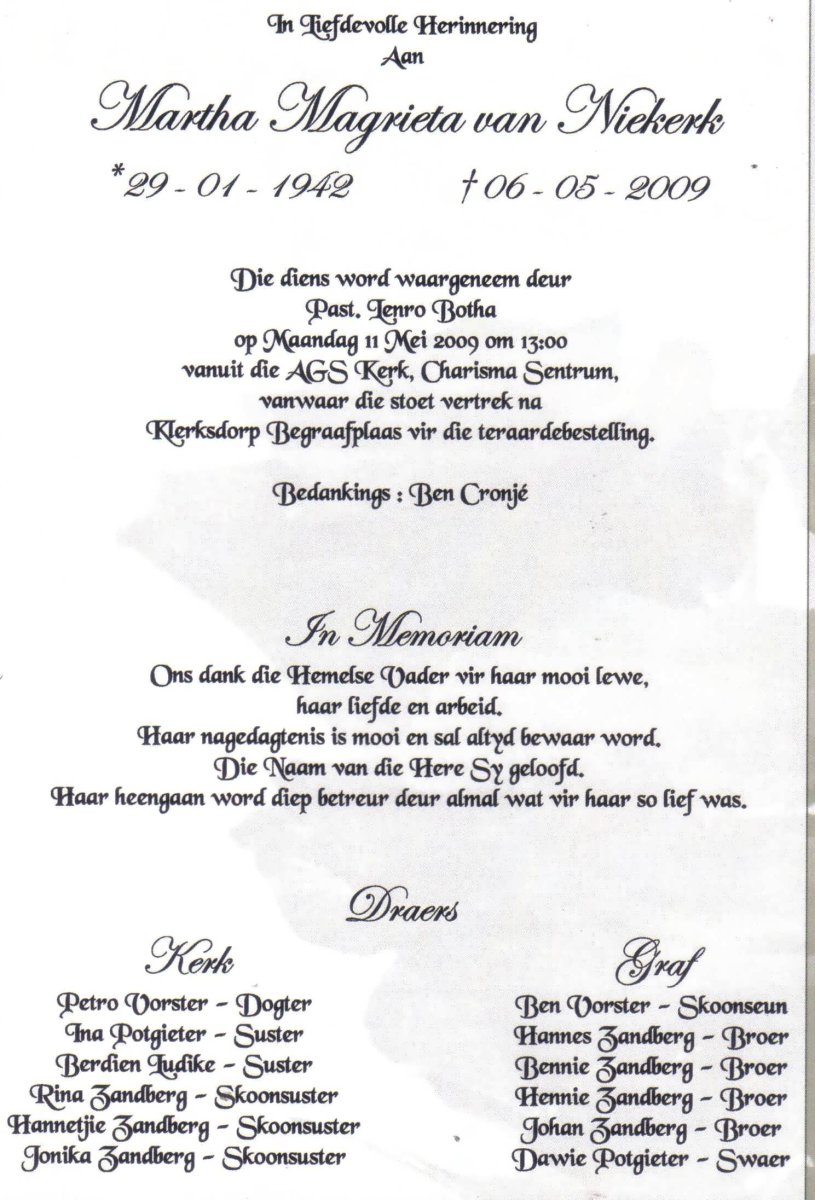 In Liefdevolle Herinnering
Aan
Martha Magrieta van Niekerk
*29 - 01 - 1942 † 06 - 05 - 2009
Die diens word waargeneem deur
Past. Lenro Botha
op Maandag 11 Mei 2009 om 13:00
vanuit die AGS Kerk, Charisma Sentrum,
vanwaar die stoet vertrek na
Klerksdorp Begraafplaas vir die teraardebestelling.
Bedankings : Ben Cronjé
In Memoriam
Ons dank die Hemelse Vader vir haar mooi lewe,
haar liefde en arbeid.
Haar nagedagtenis is mooi en sal altyd bewaar word.
Die Naam van die Here Sy geloofd.
Haar heengaan word diep betreur deur almal wat vir haar so lief was.
Draers
Kerk
Petro Vorster - Dogter
Ina Potgieter - Suster
Berdien Ludike - Suster
Rina Zandberg - Skoonsuster
Hannetjie Zandberg - Skoonsuster
Jonika Zandberg - Skoonsuster
Graf
Ben Vorster - Skoonseun
Hannes Zandberg - Broer
Bennie Zandberg - Broer
Hennie Zandberg - Broer
Johan Zandberg - Broer
Dawie Potgieter - Swaer